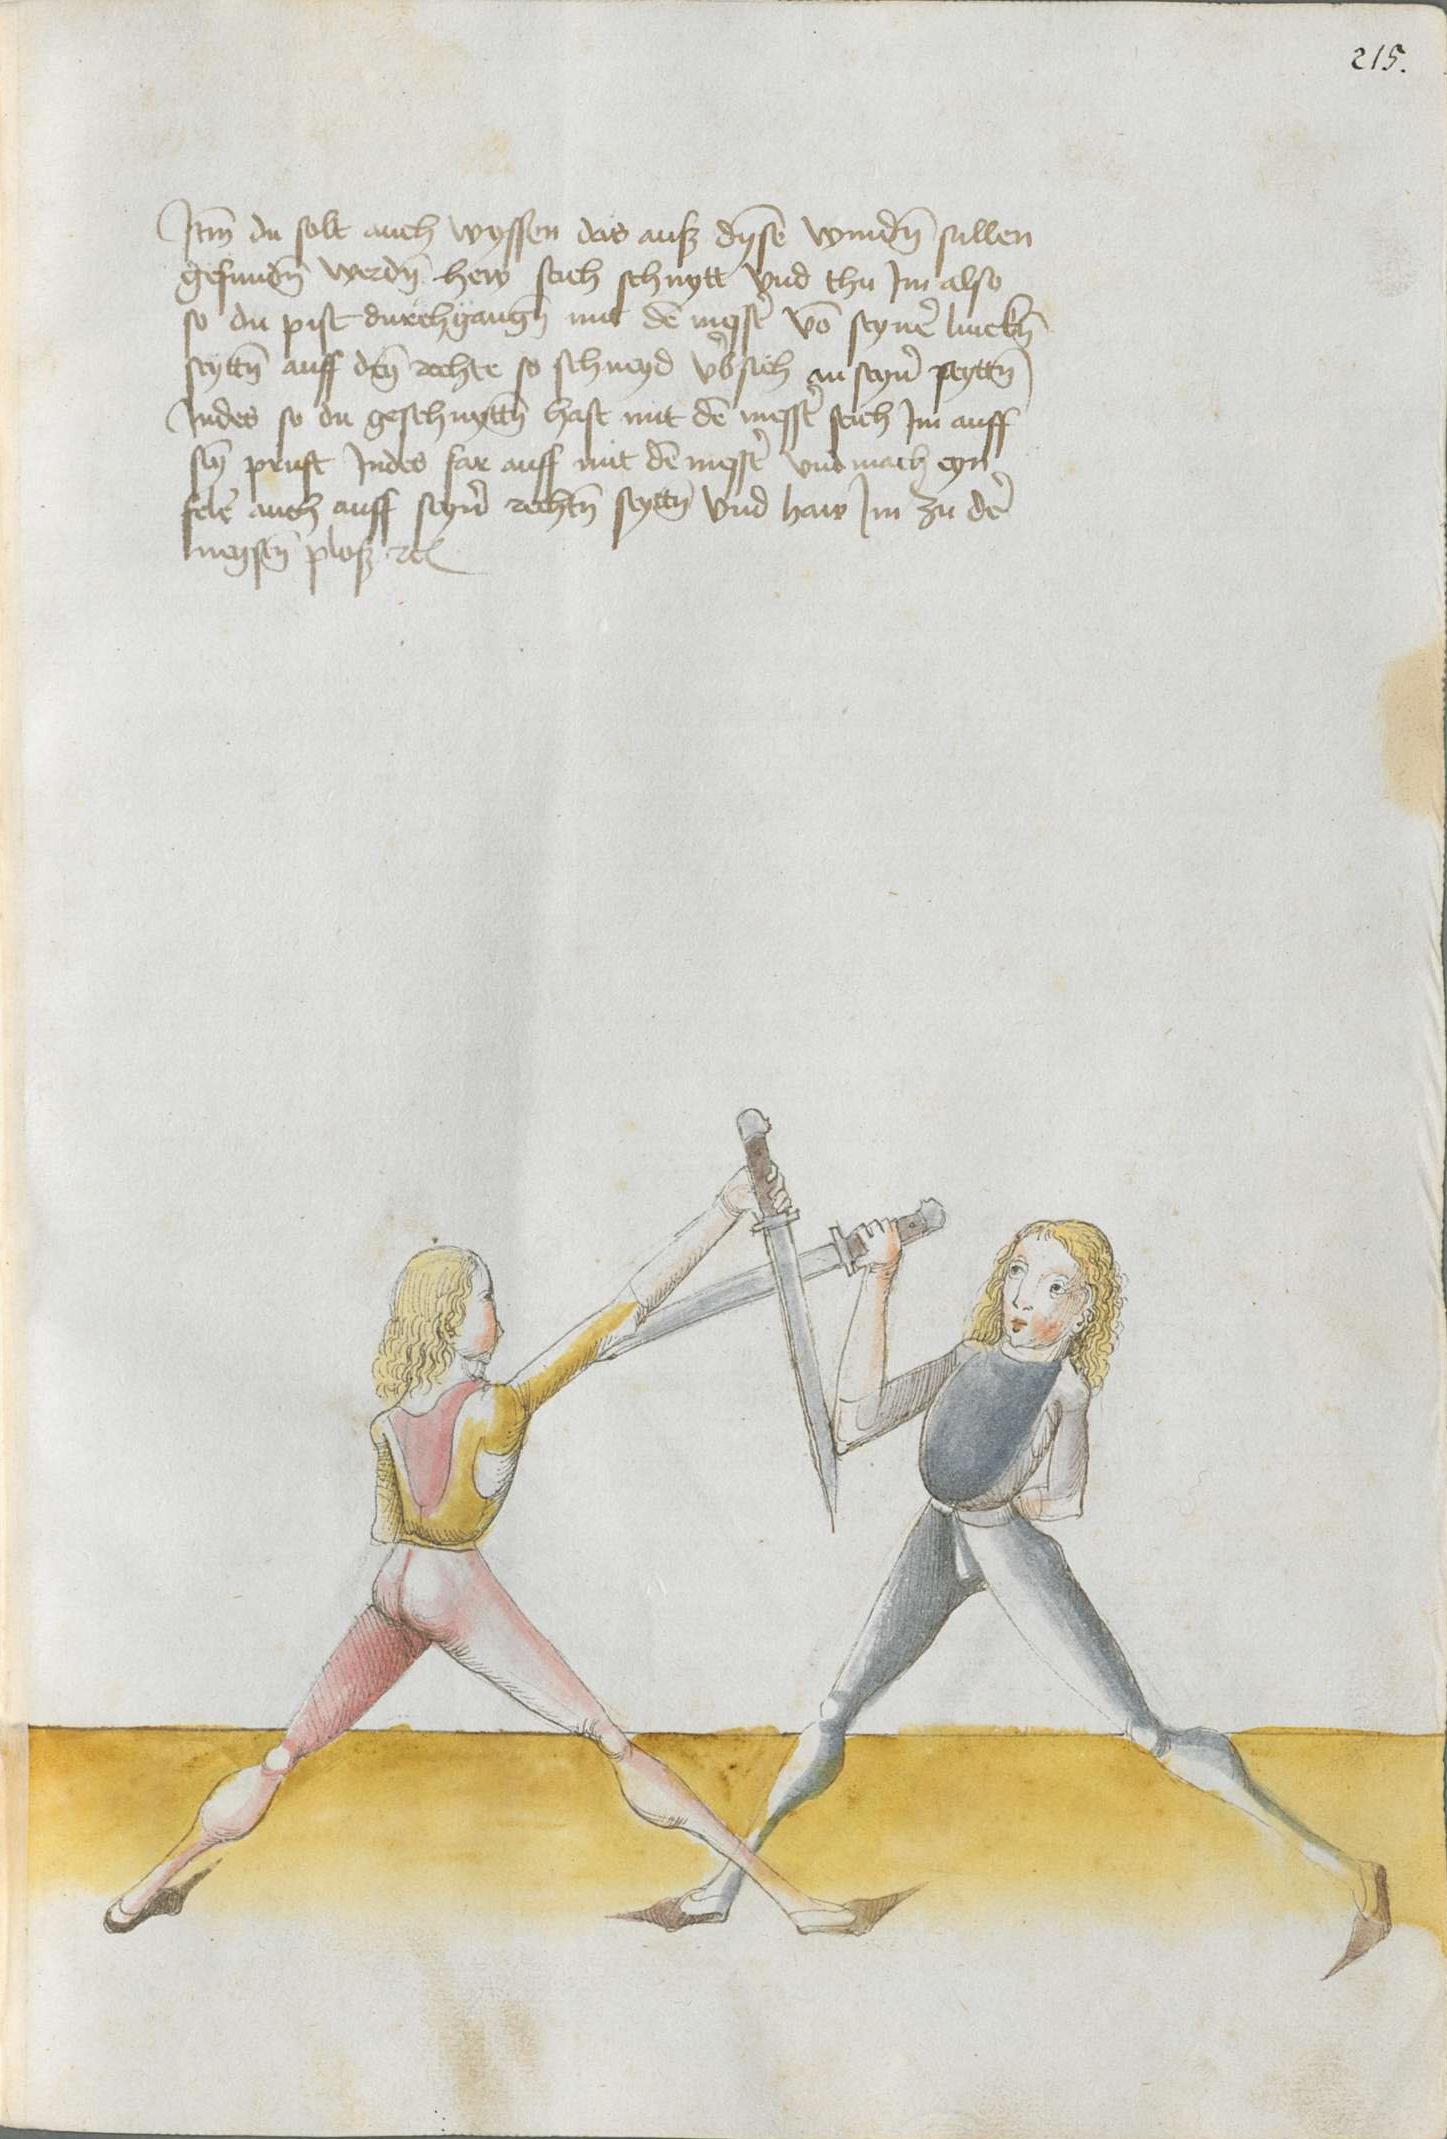 215.
Itm̄ du solt auch wyssen das auß dyse͂ windn̄ sullen
gefundn̄ werdn̄ hew stich schnytt vnd thu Im also
so du pist durchgangn̄ mit de͂ messer vo͂ seyner linckn̄
seyttn̄ auff dy͂ rechte so schneyd vbersich in seyn̄ seyttn̄
Indes so du geschnyttn̄ hast mit de͂ messer stich Im auff
sey͂ prust Indes far auff mit de͂ messer vnd mach eyn
feler auch auff seyn̄ rechtn̄ seyttn̄ vnd haw Im zu der
negstn̄ ploß rc